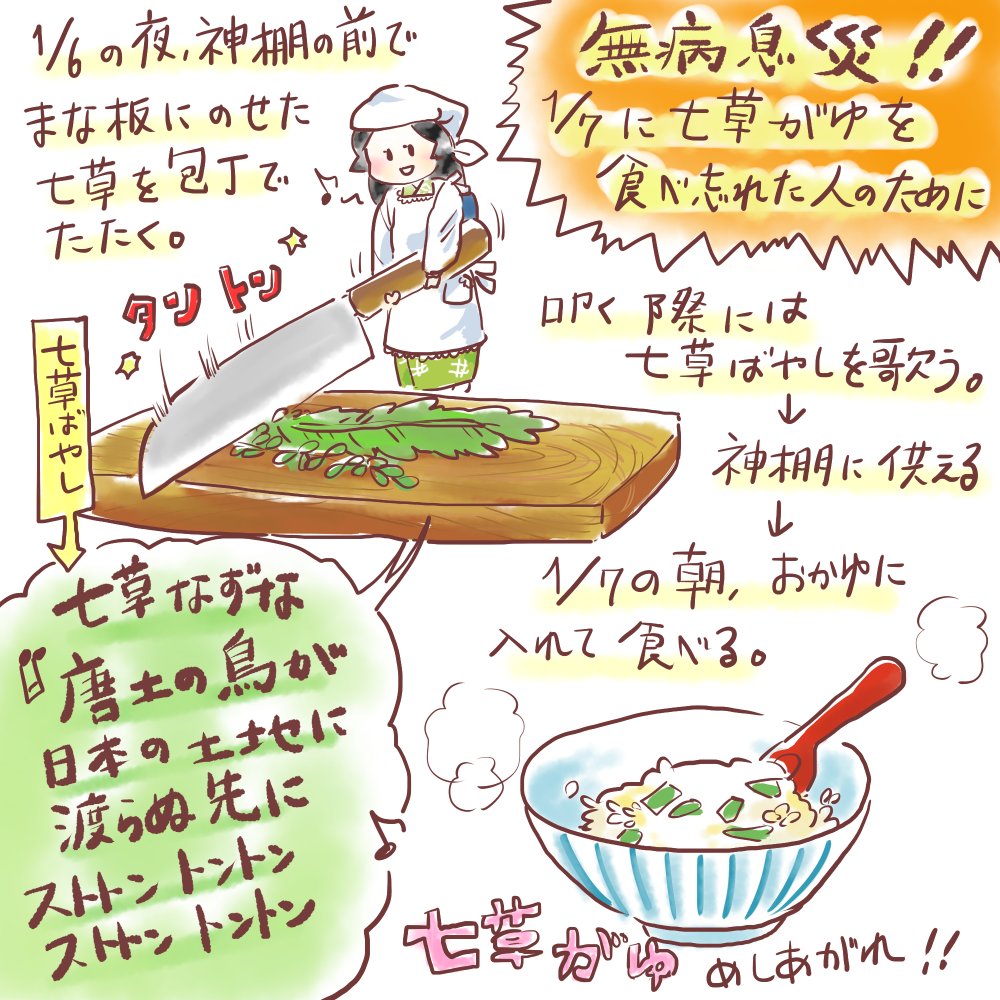 無病息災!!
1/7に七草がゆを
食べ忘れた人のために
1/6の夜、神棚の前で
まな板にのせた
七草を包丁で
たたく。
タン トン
叩く際には
七草ばやしを歌う。
↓
神棚に供える
↓
1/7の朝、おかゆに
入れて食べる。
七草ばやし
七草なずな
『唐土の鳥が
日本の土地に
渡らぬ先に
ストトン トントン
ストトン トントン
七草がゆ めしあがれ!!